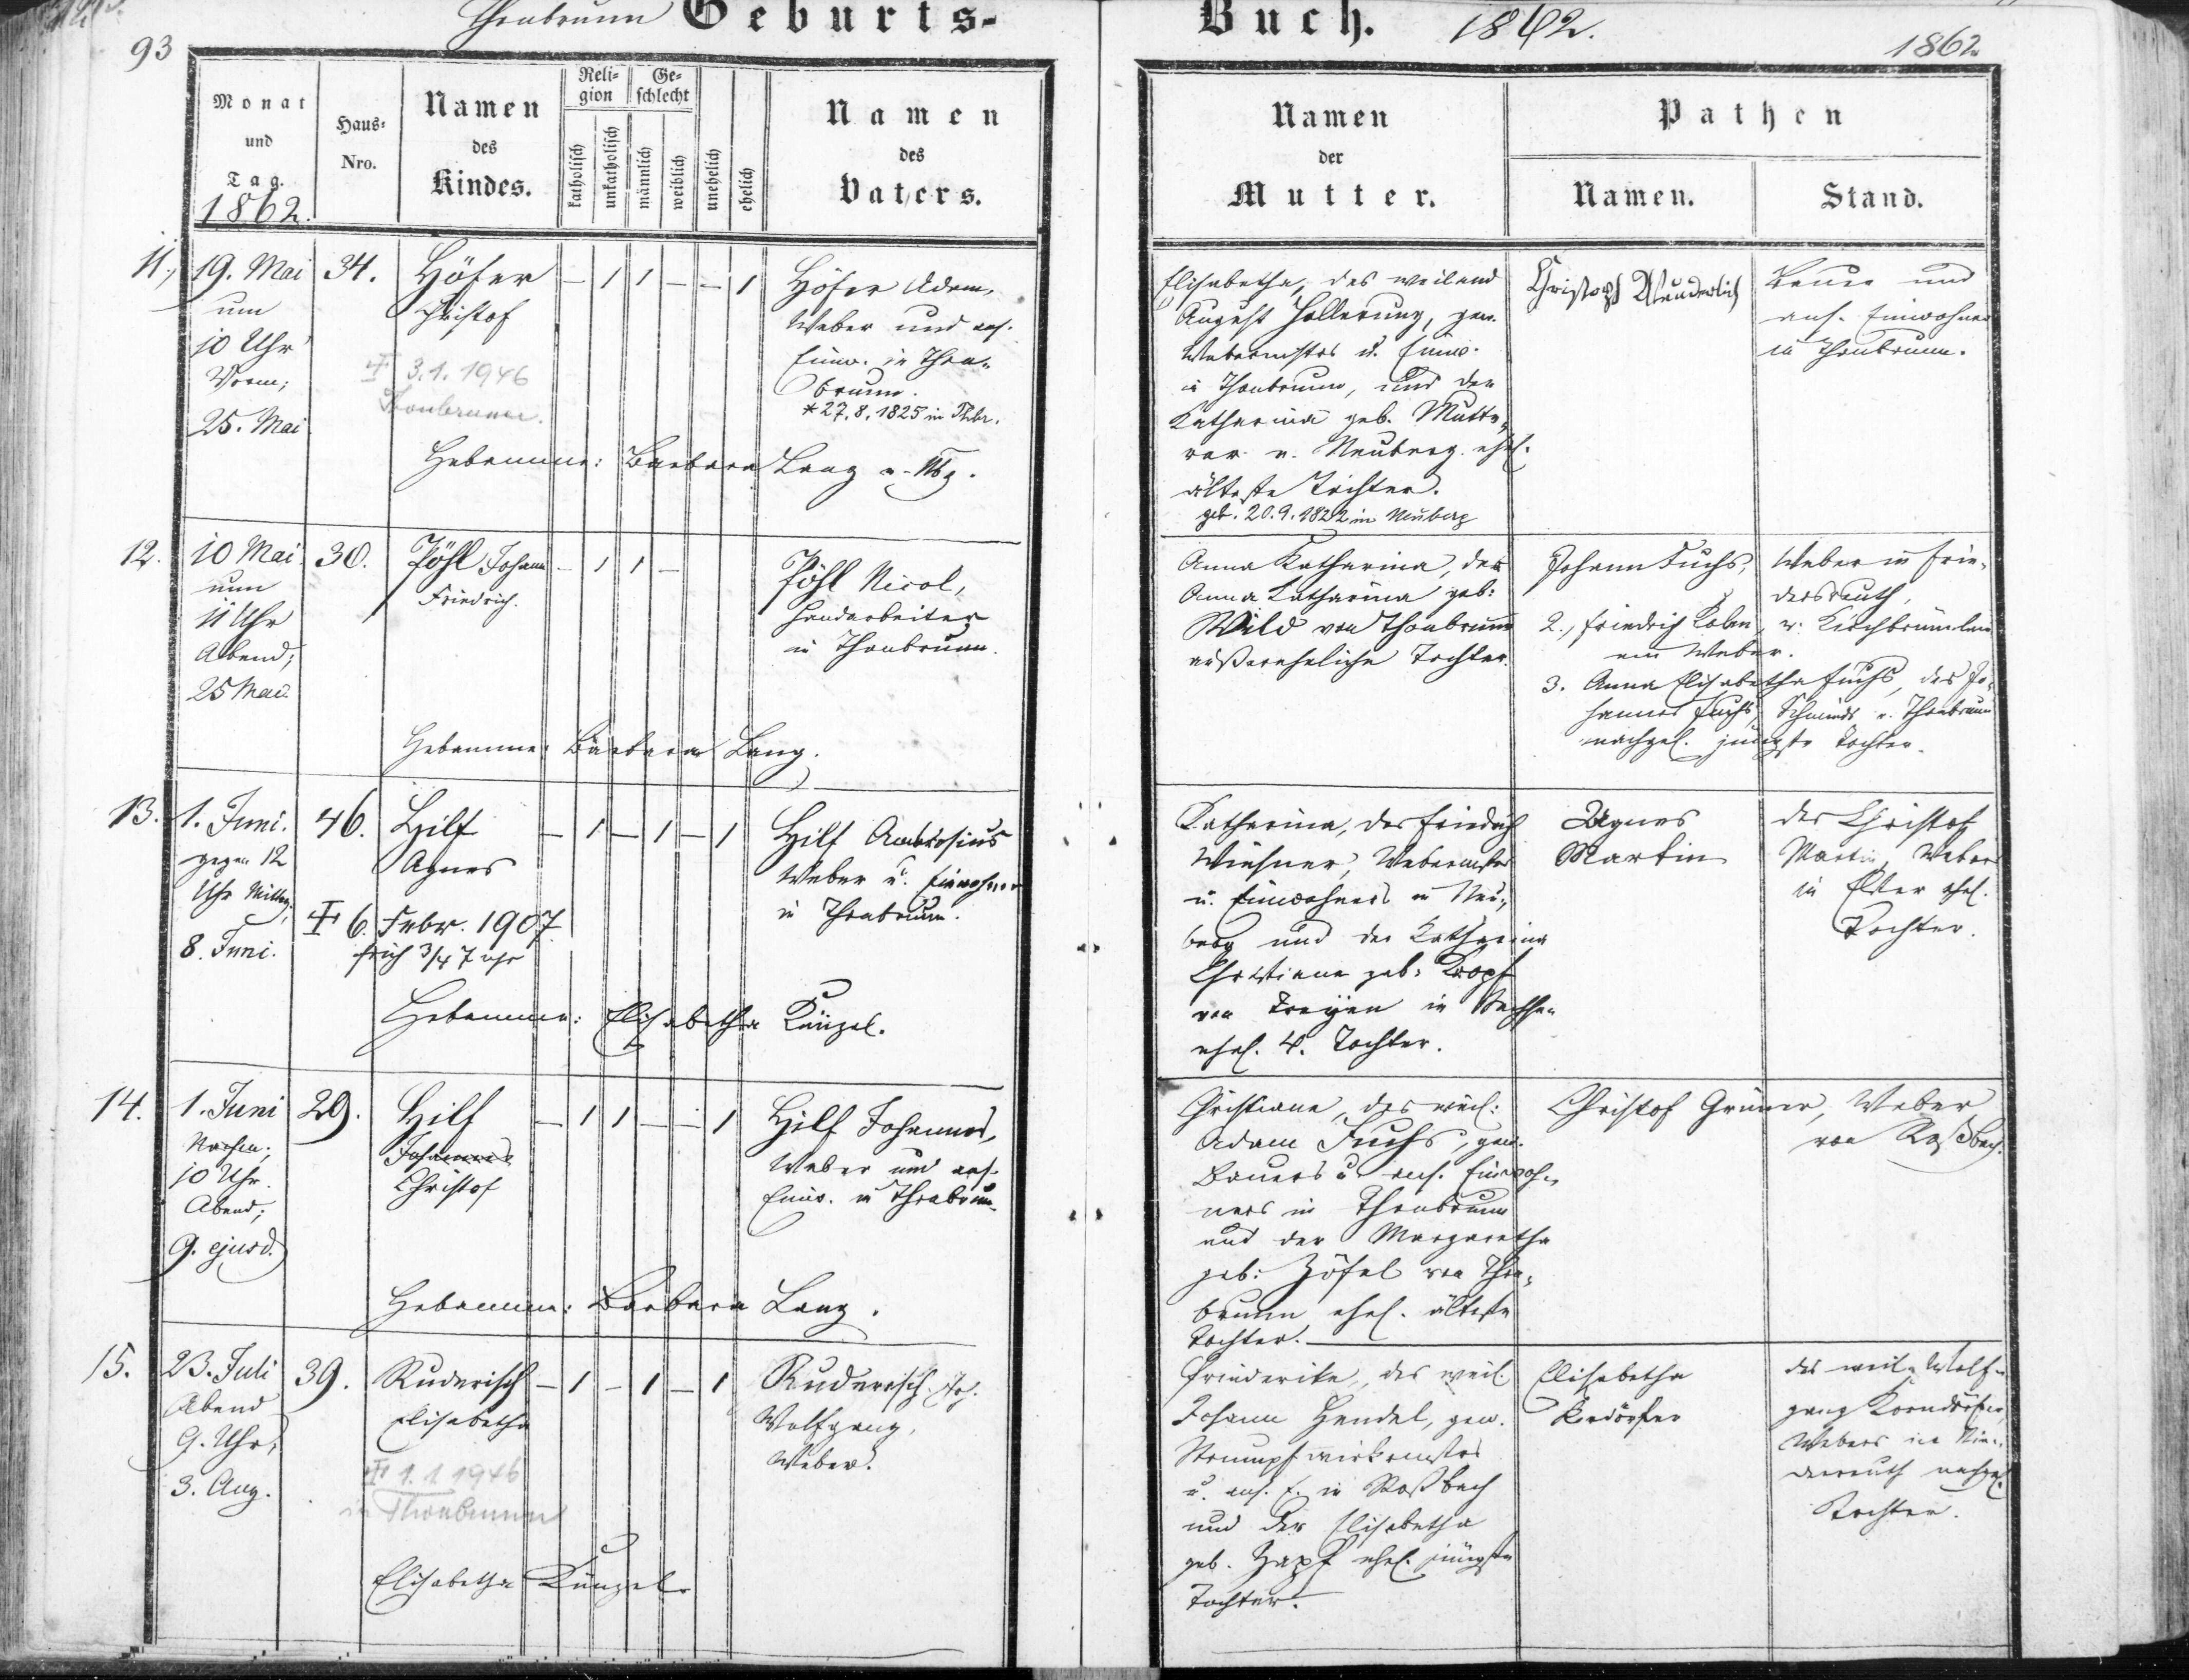 Thonbrunn Geburts-Buch. 1862.
93
1862
Monat und Tag. 1862.
Haus-Nro.
Namen des Kindes.
Religion
katholisch
unkatholisch
Geschlecht
männlich
weiblich
unehelich
ehelich
Namen des Vaters.
Namen der Mutter.
Pathen
Namen.
Stand.
11.,
19. Mai
um
10 Uhr
Vorm;
25. Mai
34.
Höfer
Christof
3.1.1946
Thonbrunn.
– 1 1 – – 1
Höfer Adam,
Weber und ans.
Einw. in Thon-
brunn.
*27.8.1825 in Thbr.
Hebamme: Barbara Lang v. Nbg.
Elisabetha, des weiland
August Hollerung, gew.
Webermstrs u. Einw.
in Thonbrunn, und der
Katharina geb.
v. Neuberg ehel.
älteste Tochter.
geb. 20.9.1822 in Neuberg
Christoph Wunderlich
Bauer und
ans. Einwohner
in Thonbrunn.
12.
10 Mai
um
11 Uhr
Abend;
25 Mai
30.
Pöhl Johann
Friedrich.
– 1 1 –
Pöhl Nicol,
Handarbeiter
in Thonbrunn.
Hebamme: Barbara Lang.
Anna Katharina, der
Anna Katharina geb:
Wild von Thonbrunn
außereheliche Tochter.
Johann Fuchs, Weber in Frie-
dersreuth,
2., Friedrich
ein Weber.
3. Anna Elisabetha Fuchs, des Jo-
hannes Fuchs, Schmieds v. Thonbrunn
nachgel. jüngste Tochter.
13.
1. Juni.
gegen 12
Uhr Mittag;
8. Juni.
46.
Hilf
Agnes
6. Febr. 1907
früh 3/4 7 uhr
– 1 – 1 – 1
Hilf Ambrosius
Weber u. Einwohner
in Thonbrunn.
Hebamme: Elisabetha Künzel.
Katharina, des Friedrich
Webermstrs
u. Einwohners in Neu-
berg und der Katharina
Christiana geb: Kropf
von in Sachsen
ehel. 4. Tochter.
Agnes
Martin
des Christof
Martin, Webers
in Elster ehel.
Tochter.
14.
1. Juni
10 Uhr.
Abend;
9. ejusd.
29.
Hilf
Johannes
Christof
– 1 1 – – 1
Hilf Johannes,
Weber und ans.
Einw. in Thonbrunn
Hebamme: Barbara Lang.
Christiana, des weil:
Adam Fuchs, gew.
Bauers u. ans. Einwoh-
ners in Thonbrunn
und der Margaretha
geb: Zöfel von Thon-
brunn ehel. älteste
Tochter.
Christof Grüner, Weber
von Roßbach.
15.
23. Juli
Abend
9. Uhr;
3. Aug.
39.
Ruderisch
Elisabetha
1.1.1946
in Thonbrunn
– 1 – 1 – 1
Ruderisch Joh.
Wolfgang,
Weber.
Elisabetha Künzel
Friederike, des weil.
Johann Hendel, gew.
Strumpfwirkermstrs
u. ans. E. in Roßbach
und der Elisabetha
geb. Zapf ehel. jüngste
Tochter.
Elisabetha
Korndörfer
des weil. Wolf-
gang Korndörfer,
Webers in Nie-
derreuth nachgel.
Tochter.